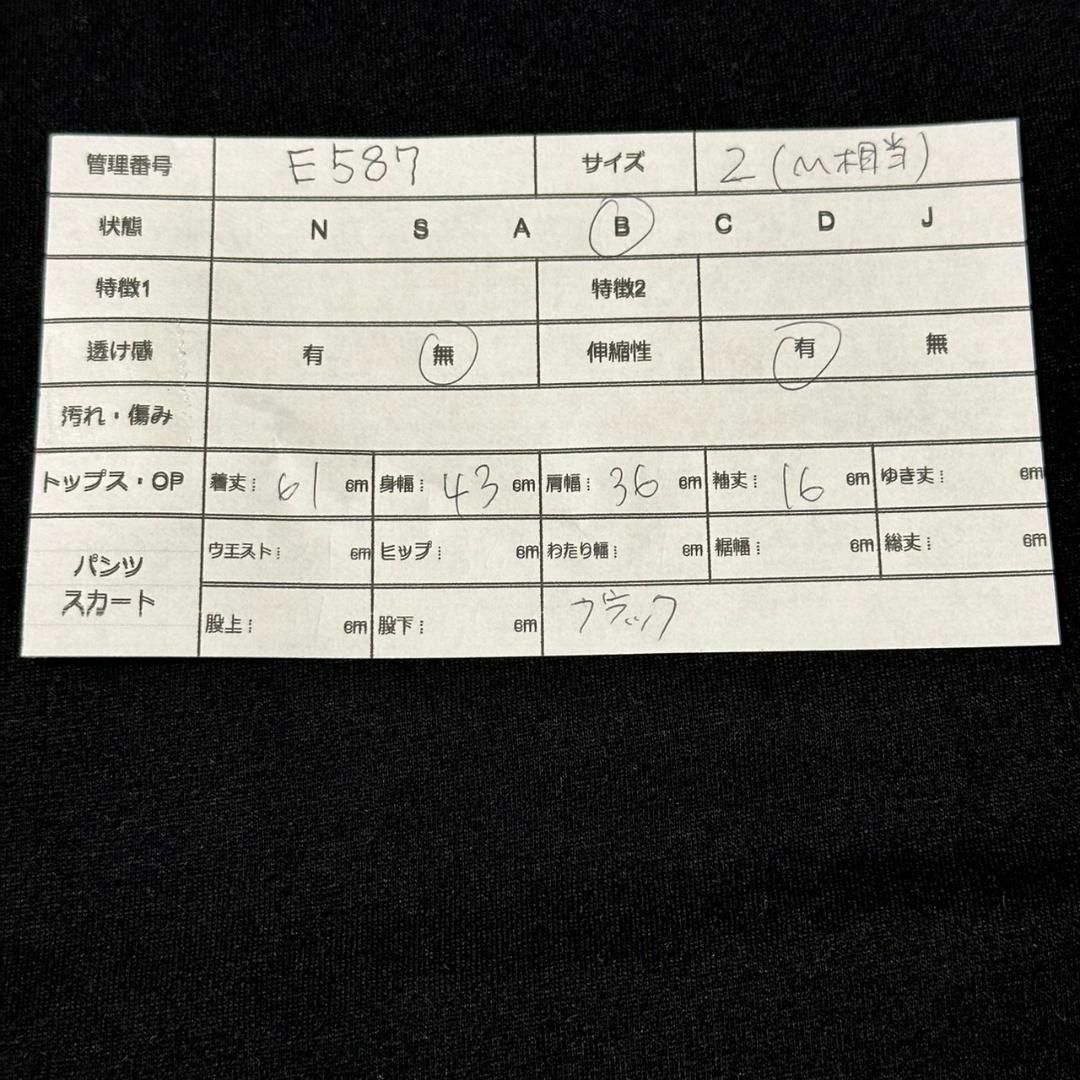 管理番号 E587 サイズ 2(M相当)
状態 N S A B C D J
特徴1 特徴2
透け感 有 無 伸縮性 有 無
汚れ・傷み
トップス・OP 着丈: 61 cm 身幅: 43 cm 肩幅: 36 cm 袖丈: 16 cm ゆき丈: cm
パンツ スカート
ウエスト: cm ヒップ: cm わたり幅: cm 裾幅: cm 総丈: cm
股上: cm 股下: cm ブラック